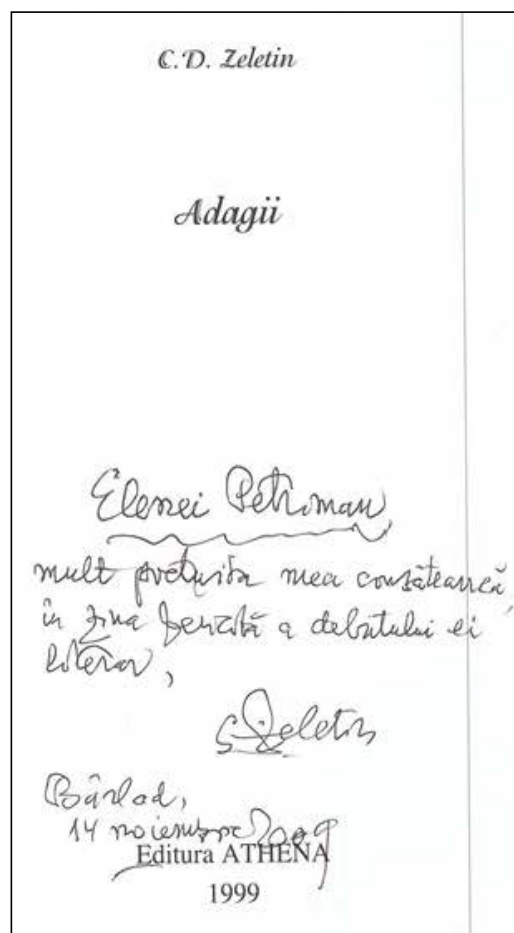 C.D. Zeletin
Adagii
Elenei Petriman,
mult prețuita mea consăteancă,
în ziua fericită a debutului ei
literar,
C Zeletin
Bârlad,
14 noiembrie 2009
Editura ATHENA
1999